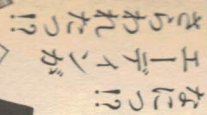 なにっ!?
エーディンが
さらわれたっ!?